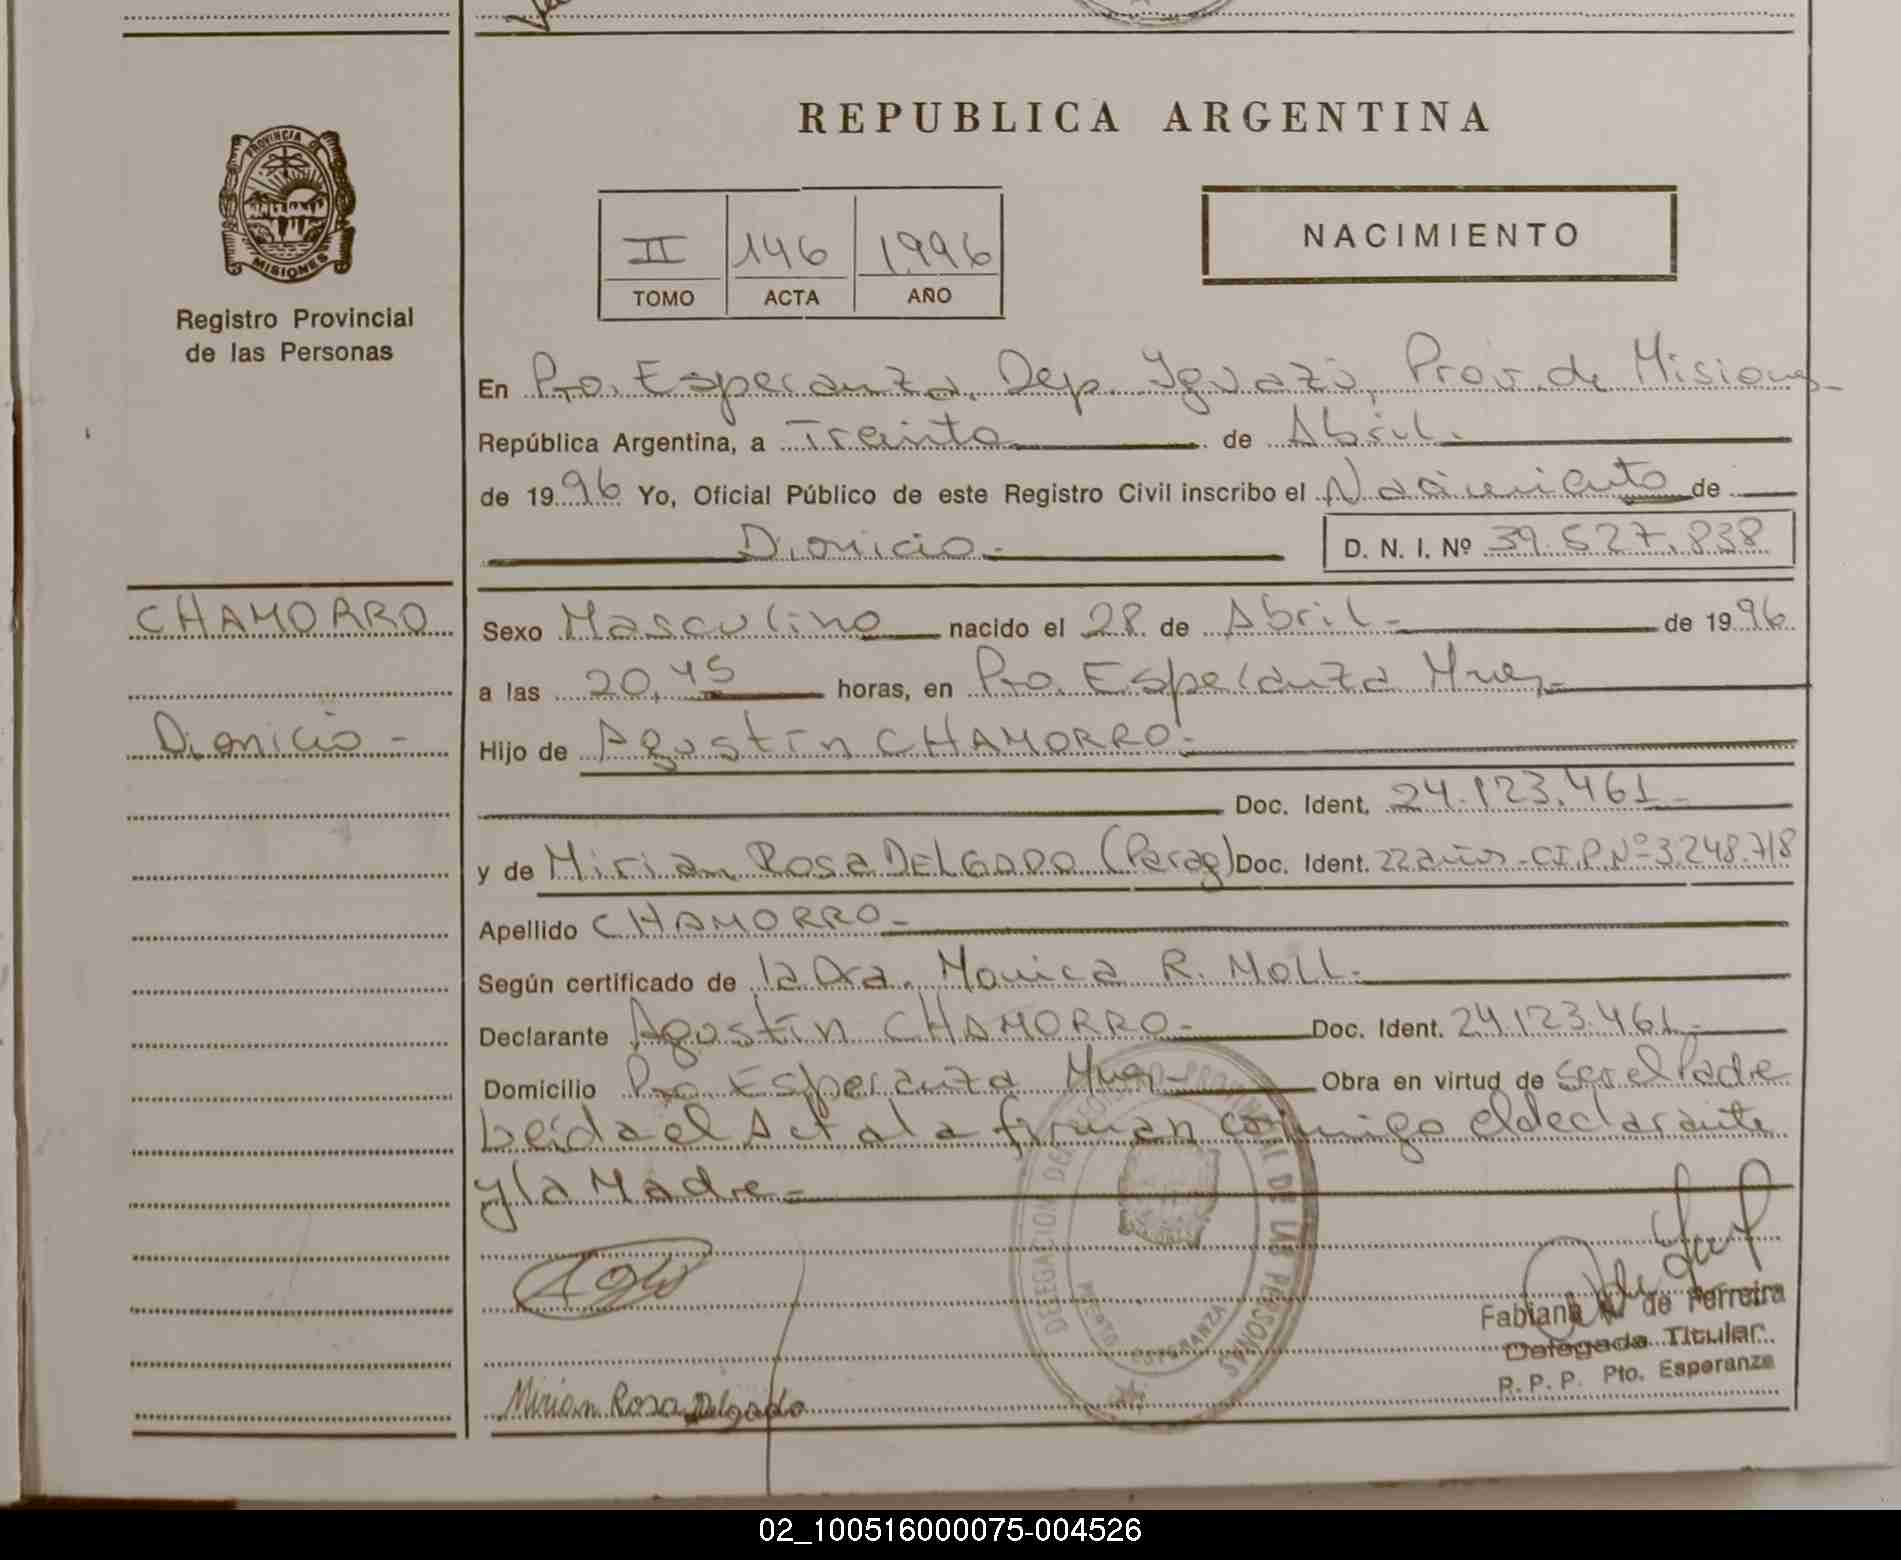 REPUBLICA ARGENTINA
PROVINCIA DE
MISIONES
Registro Provincial
de las Personas
II 146 1996
TOMO ACTA AÑO
NACIMIENTO
En Pto. Esperanza, Dep. Iguazú, Prov. de Misiones-
República Argentina, a Treinta de Abril.
de 1996 Yo, Oficial Público de este Registro Civil inscribo el Nacimiento de
Dionicio- D. N. I. Nº 39.527.838
CHAMORRO
Dionicio-
Sexo Masculino nacido el 28 de Abril- de 1996
a las 20,45 horas, en Pto. Esperanza Mnes-
Hijo de Agustín CHAMORRO-
Doc. Ident. 24.123.461-
y de Mirian Rosa DELGADO (Parag) Doc. Ident. 22 años-CI.P.Nº3.248.718
Apellido CHAMORRO-
Según certificado de la Dra. Monica R. Moll-
Declarante Agustín CHAMORRO- Doc. Ident. 24.123.461-
Domicilio Pto Esperanza Mnes- Obra en virtud de ser el Padre
Leída el Acta la firman conmigo el declarante
y la Madre-
DELEGACION DE DE LAS PERSONAS
PUERTO ESPERANZA
Fabiana de Ferreira
Delegada Titular
R. P. P. Pto. Esperanza
Mirian Rosa Delgado
02_100516000075-004526